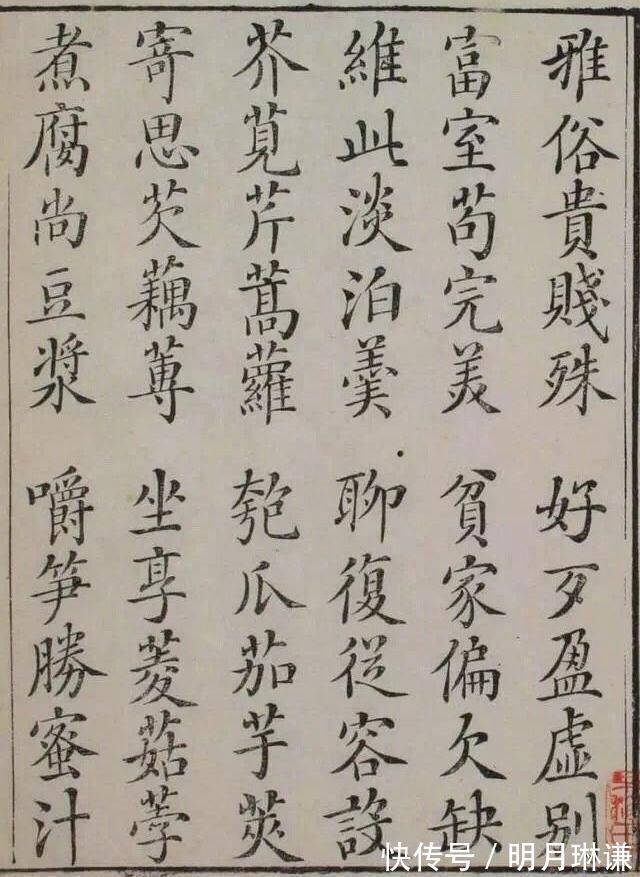 雅俗貴賤殊 好歹盈虛別
富室苟完美 貧家偏欠缺
維此淡泊羹 聊復從容
芥莧芹蒿蘿 匏瓜茄芋莢
寄思芡藕蓴 坐享菱菇荸
煮腐尚豆漿 嚼笋勝蜜汁
快传号 / 明月琳谦